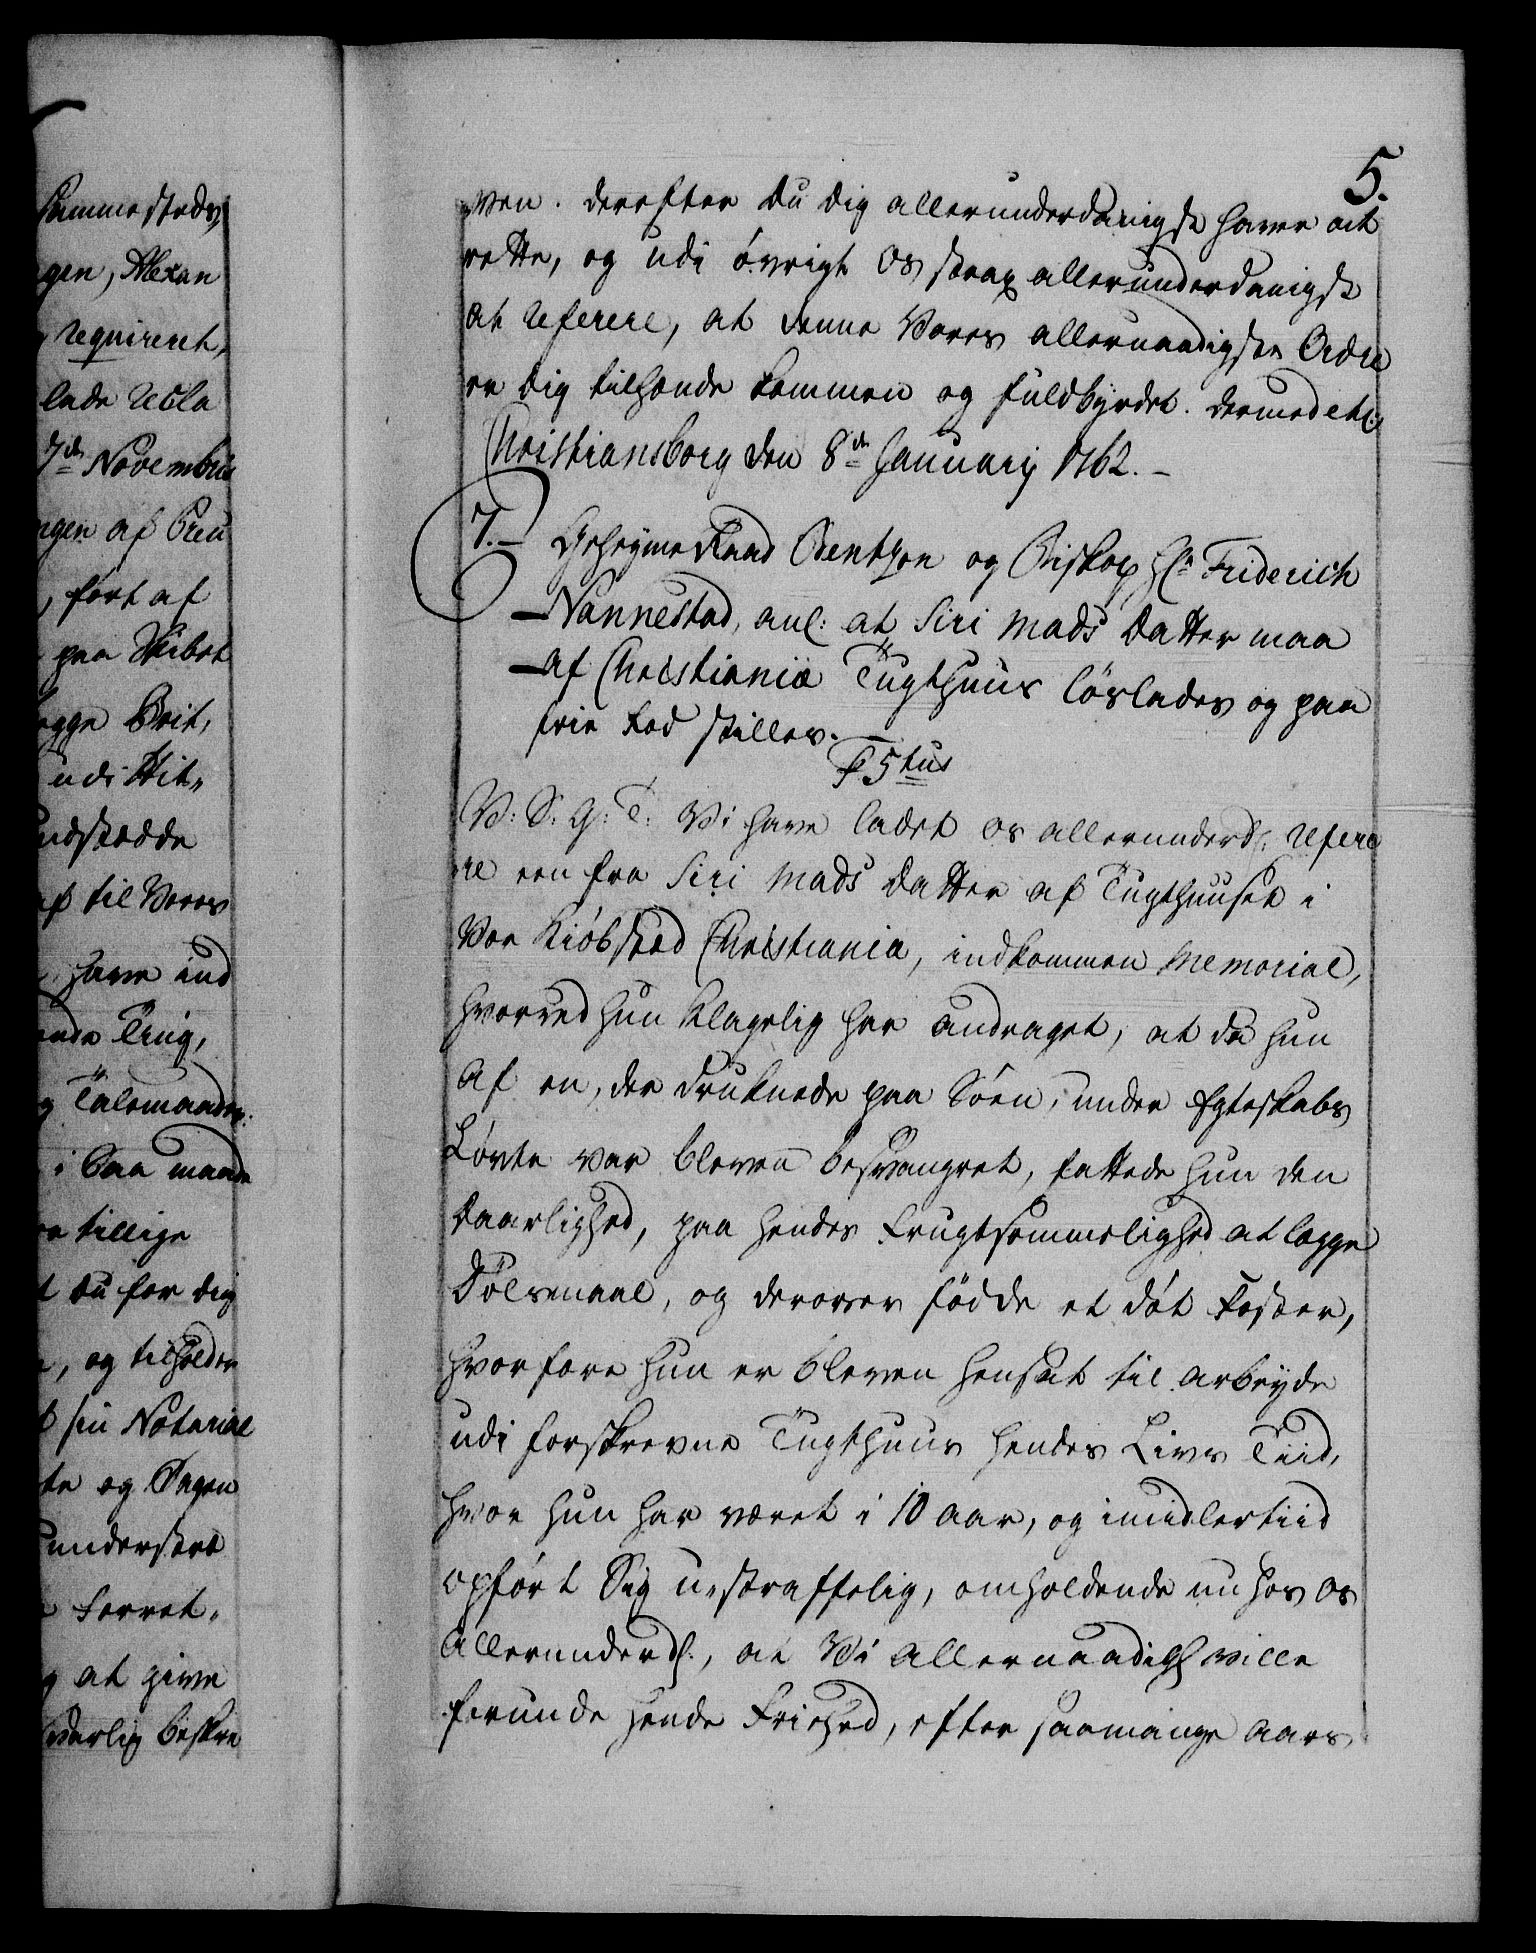 Sammesteds,
gen, Alexan
requireret,
lade Recla
7de Novembris
ngen af Preu
, ført af
paa Skibet
egge Brit,
udi Hit,
undstædde
til Vores
have ind
ende Ting,
g Talemaader
i saa maade
e tillige
t Du for Dig
, og tilholder
t sin Notarial
te og Sagen
understøt
forret,
g at give
derlig beskre
5.
ven. Derefter Du dig allerunderdanigst haver at
rette, og udi øvrigt Os strax allerunderdanigst
at referere, at denne Vores allernaadigste Ordre
er dig tilhænde kommen og fuldbyrdet. Dermed etc:
Christiansborg den 8de Januarij 1762.
7. Geheyme Raad Benthon og Biskop Hr Friderich
Nannestad, anl: at Siri Mads Datter maa
af Christianiæ Tugthuus løslades og paa
frie Fod stilles.
F 5tus
V: S: G: T: Vi have ladet os allerunderd: refere
re een fra Siri Mads Datter af Tugthuuset i
Vor Kiøbsted Christiania, indkommen Memorial,
hvorved hun klagelig har andraget, at da hun
af en, der druknede paa Søen, under Egteskabs
Løvte var bleven besvangret, fattede hun den
Daarlighed, paa hendes Frugtsommelighed at legge
Dølsmaal, og derover fødde et døt Foster,
hvorfore hun er bleven hensat til Arbeyde
udi forskrevne Tugthuus hendes Livs Tiid,
hvor hun har været i 10 Aar, og imidlertiid
opført Sig u-straffelig, omholdende nu hos os
allerunderd:, at Vi allernaadigst ville
forunde hende Friehed, efter saamange Aars